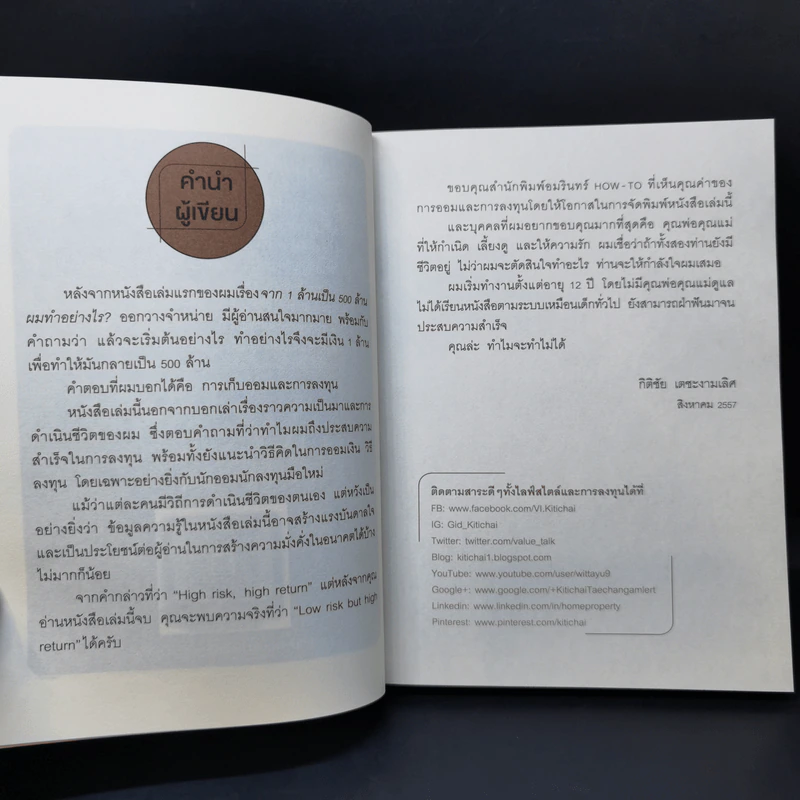 คำนำ
ผู้เขียน
หลังจากหนังสือเล่มแรกของผมเรื่อง จาก 1 ล้านเป็น 500 ล้าน
ผมทำอย่างไร? ออกวางจำหน่าย มีผู้อ่านสนใจมากมาย พร้อมกับ
คำถามว่า แล้วจะเริ่มต้นอย่างไร ทำอย่างไรจึงจะมีเงิน 1 ล้าน
เพื่อทำให้มันกลายเป็น 500 ล้าน
คำตอบที่ผมบอกได้คือ การเก็บออมและการลงทุน
หนังสือเล่มนี้นอกจากบอกเล่าเรื่องราวความเป็นมาและการ
ดำเนินชีวิตของผม ซึ่งตอบคำถามที่ว่าทำไมผมถึงประสบความ
สำเร็จในการลงทุน พร้อมทั้งยังแนะนำวิธีคิดในการออมเงิน วิธี
ลงทุน โดยเฉพาะอย่างยิ่งกับนักออมนักลงทุนมือใหม่
แม้ว่าแต่ละคนมีวิถีการดำเนินชีวิตของตนเอง แต่หวังเป็น
อย่างยิ่งว่า ข้อมูลความรู้ในหนังสือเล่มนี้อาจสร้างแรงบันดาลใจ
และเป็นประโยชน์ต่อผู้อ่านในการสร้างความมั่งคั่งในอนาคตได้บ้าง
ไม่มากก็น้อย
จากคำกล่าวที่ว่า "High risk, high return" แต่หลังจากคุณ
อ่านหนังสือเล่มนี้จบ คุณจะพบความจริงที่ว่า "Low risk but high
return" ได้ครับ
ขอบคุณสำนักพิมพ์อมรินทร์ HOW-TO ที่เห็นคุณค่าของ
การออมและการลงทุนโดยให้โอกาสในการจัดพิมพ์หนังสือเล่มนี้
และบุคคลที่ผมอยากขอบคุณมากที่สุดคือ คุณพ่อคุณแม่
ที่ให้กำเนิด เลี้ยงดู และให้ความรัก ผมเชื่อว่าถ้าทั้งสองท่านยังมี
ชีวิตอยู่ ไม่ว่าผมจะตัดสินใจทำอะไร ท่านจะให้กำลังใจผมเสมอ
ผมเริ่มทำงานตั้งแต่อายุ 12 ปี โดยไม่มีคุณพ่อคุณแม่ดูแล
ไม่ได้เรียนหนังสือตามระบบเหมือนเด็กทั่วไป ยังสามารถฝ่าฟันมาจน
ประสบความสำเร็จ
คุณล่ะ ทำไมจะทำไม่ได้
กิติชัย เตชะงามเลิศ
สิงหาคม 2557
ติดตามสาระดีๆทั้งไลฟ์สไตล์และการลงทุนได้ที่
FB: www.facebook.com/VI.Kitichai
IG: Gid_Kitichai
Twitter: twitter.com/value_talk
Blog: kitichai1.blogspot.com
YouTube: www.youtube.com/user/wittayu9
Google+: www.google.com/+KitichaiTaechangamlert
Linkedin: www.linkedin.com/in/homeproperty
Pinterest: www.pinterest.com/kitichai